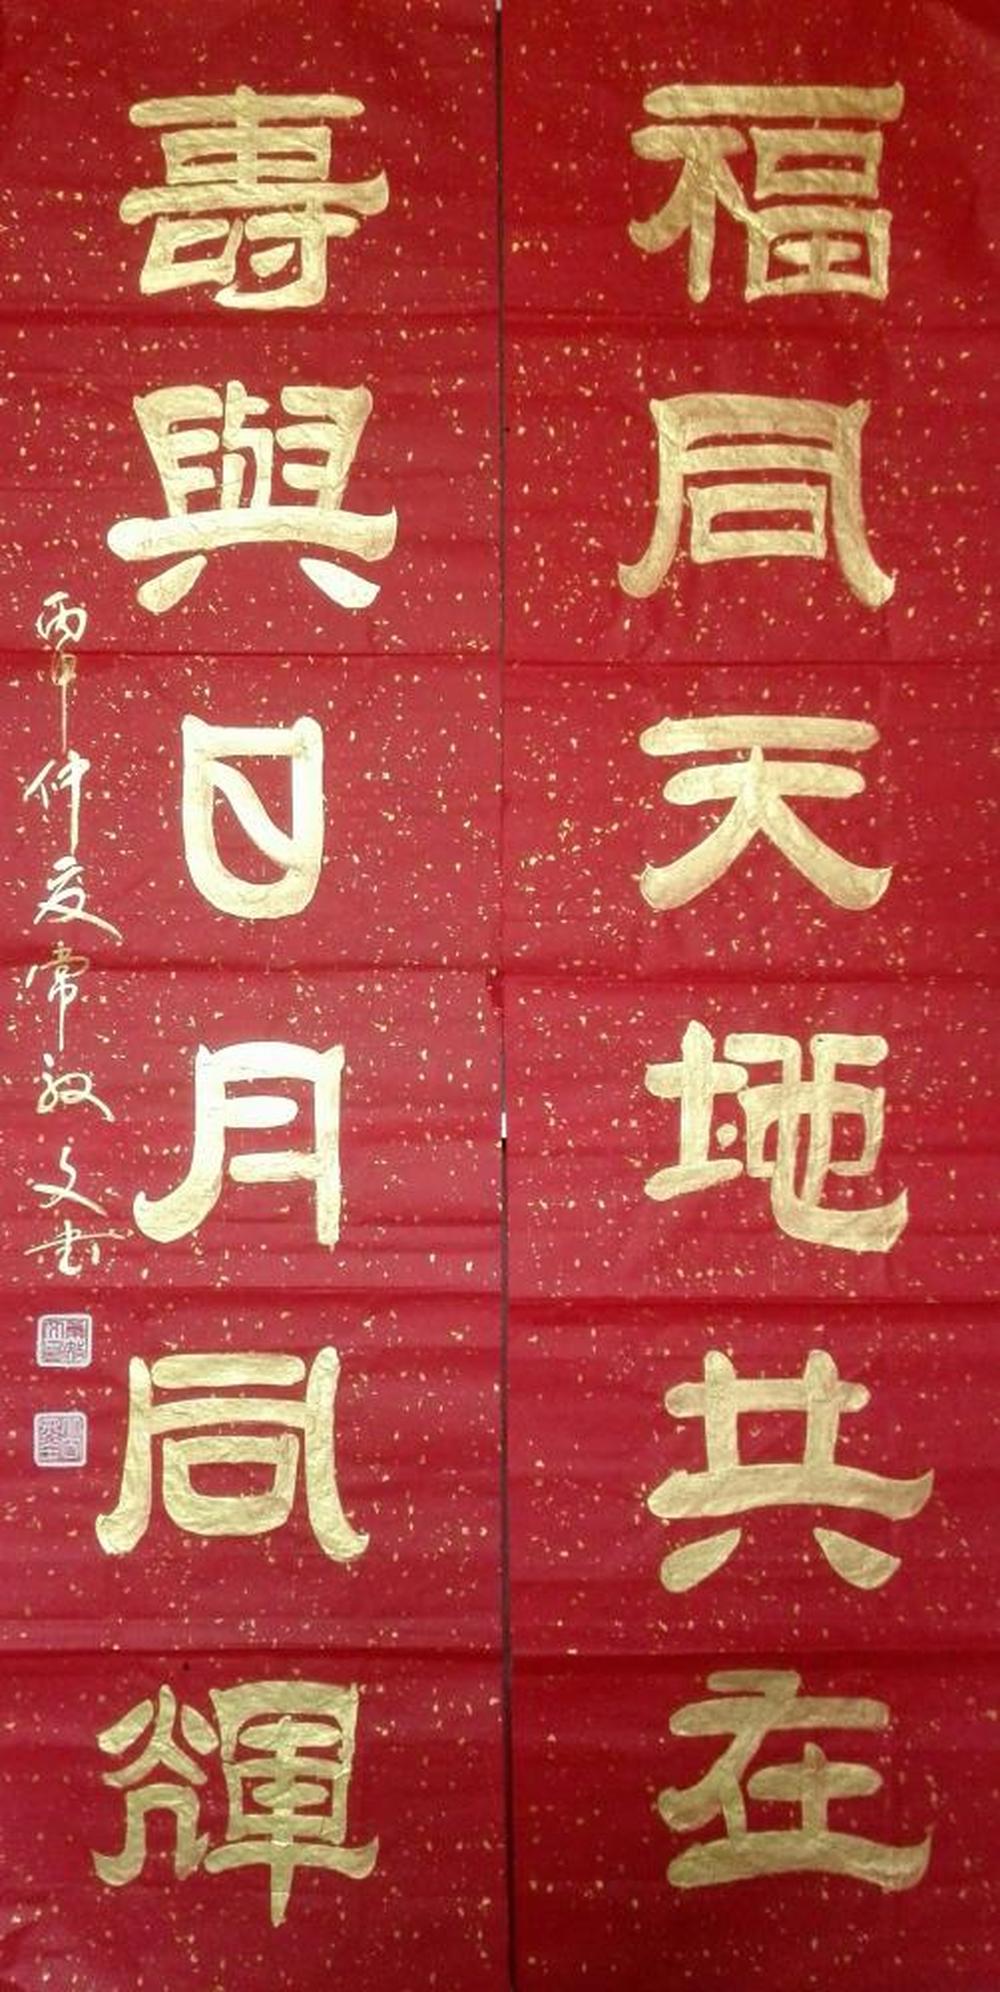 福同天地共在
壽與日月同輝
丙申仲夏常敏文書